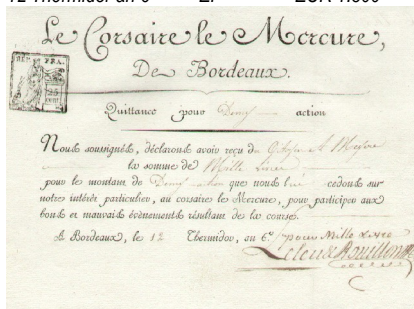 Le Corsaire le Mercure,
De Bordeaux.
REP. FRA.
25
Quittance pour Demy action
Nous soussignés, déclarons avoir reçu du Citoyen
la somme de Mille livres
pour le montant de Demy action que nous lui cedons sur
notre intérêt particulier, au corsaire le Mercure, pour participer aux
bons et mauvais événements résultans de la course.
A Bordeaux, le 12 Thermidor, an 6e. pour Mille livres